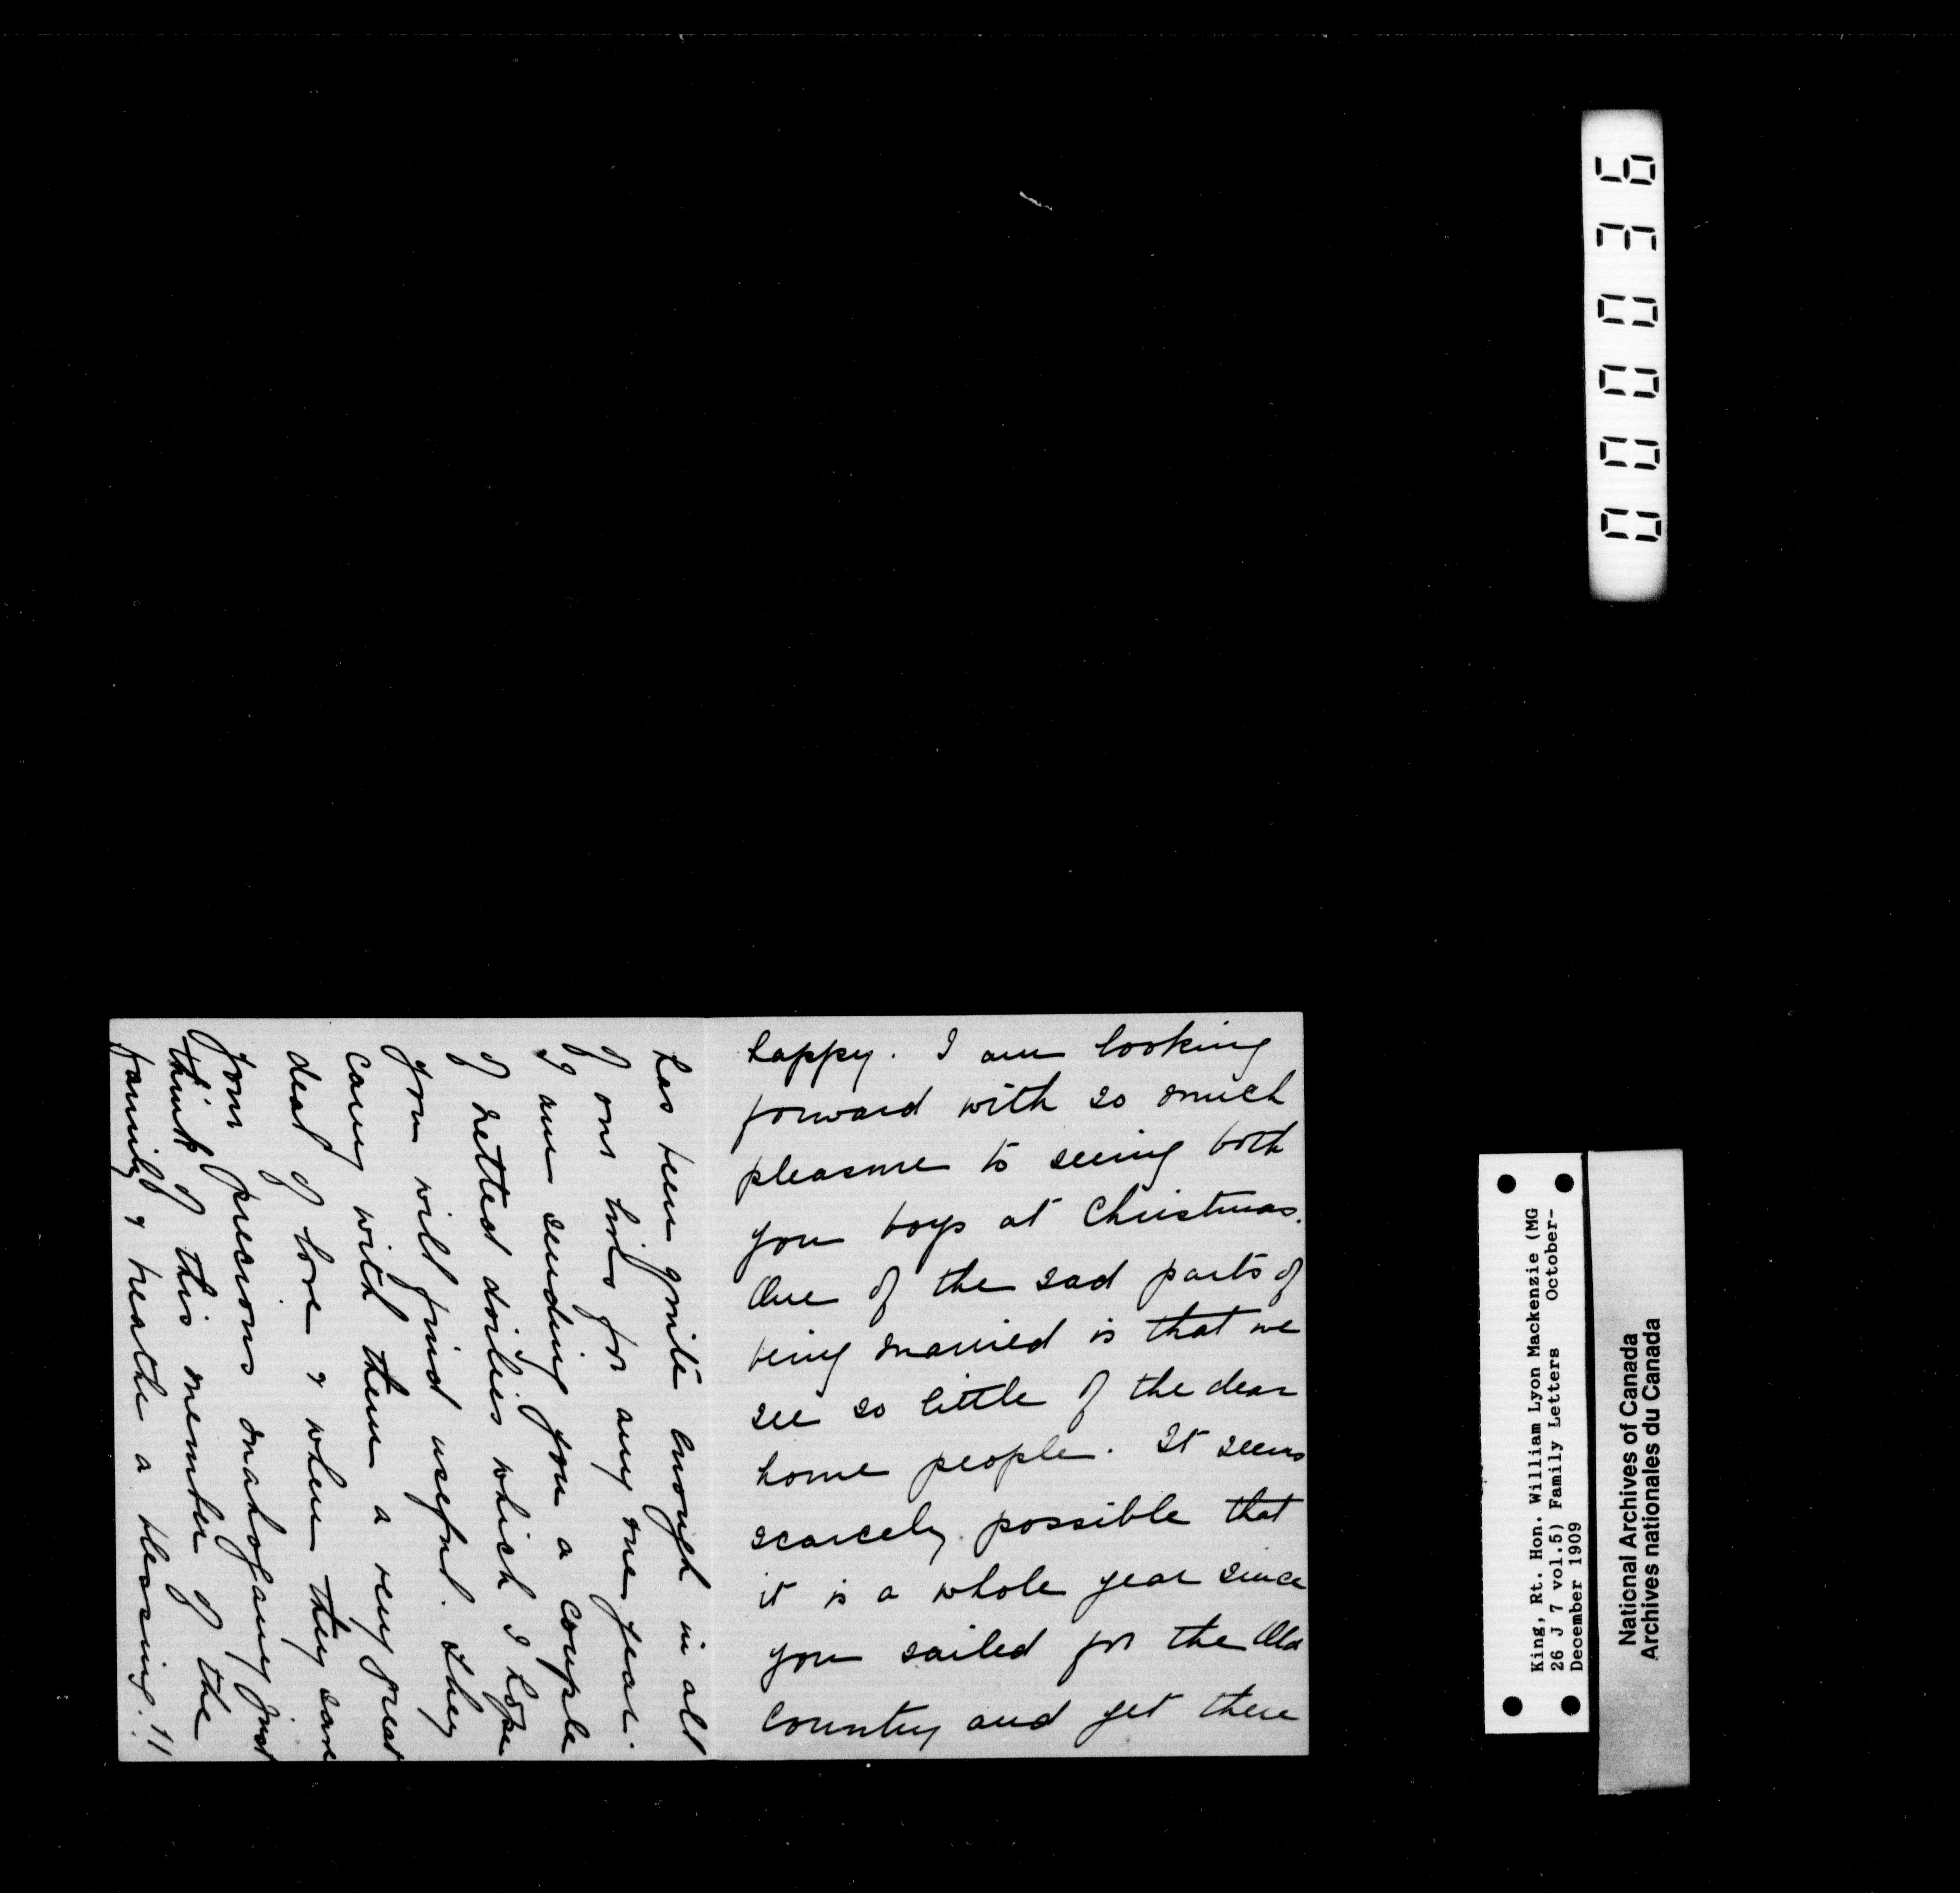 happy. I am looking
forward with so much
pleasure to seeing both
you boys at Christmas.
One of the sad parts of
being married is that we
see so little of the dear
home people. It seems
scarcely possible that
it is a whole year since
you sailed for the Old
Country and yet there
has been quite enough in all
of our lives for any one year.
I am sending you a couple
of netted doilies which I hope
you will find useful. They
carry with them a very great
deal of love & when they save
your precious mahogany just
think of this member of the
family & breathe a blessing!!
000036
King, Rt. Hon. William Lyon Mackenzie (MG
26 J 7 vol.5) Family Letters October-
December 1909
National Archives of Canada
Archives nationales du Canada